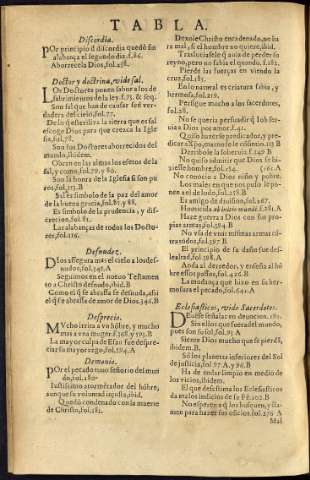 TABLA.
Discordia.
POr principio d discordia quedò sin
alabança el segundo dia. f.86.
Aborrecela Dios, fol.258.
Doctor y doctrina, vide sal.
LOs Doctores ponen sabor a los de
sabrimientos de la ley. f.75. & seq.
Son sal que han de estar ser
daderos del cielo, fol.77.
De lo q esteriliza la tierra que es sal
escoge Dios para que crezca la Igle
sia, fol.78.
Son los Doctores aborrecidos del
mundo, ibidem.
Obran en las almas los efetos de la
sal, y como, fol.79. y 80.
Son la honra de la Iglesia si son pu
ros, fol.
Sal es simbolo de la paz del amor
de la buena gracia, fol.81. y 88.
Es simbolo de la prudencia, y dis
crecion, fol.81.
Las alabanças de todos los Docto-
res, fol.126.
Desnudez.
DIos assegura mas el cielo a los des-
nudos, fol.345. A
Seguimos en el nuevo Testamen
to a Christo desnudo, ibid. B
Como el q se abrasa se desnuda, assi
el q se abrasa de amor de Dios 346. B
Desprecio.
MVcho irrita a vn hõbre, y mucho
mas a vna muger. f.308. y 593. B
La mayor culpa de Esau fue despre-
ciar su mayorazgo, fol.584. A
Demonio.
POr el pecado tuuo señorio del mun
do, fol.180.
Iustissimo atormẽtador del hõbre,
aunque su voluntad injusta, ibid.
Quedò condenado con la muerte
de Christo, fol.181.
Dexole Christo encadenado, no ha
ra mal, si el hombre no quiere, ibid.
Trasluciasele q auia de perder su
reyno, pero no sabia el quando. f.181.
Pierde las fuerças en viendo la
cruz, fol.183.
En lo natural es criatura sabia, y
hermosa, fol.219.
Persigue mucho a los sacerdotes,
fol.38.
No se queria persuadir q los ser-
uian a Dios por amor, f.41.
Quiso hazerse predicador, y pre-
dicar a Xpo, mas no le cõsintió. 119 B
Derribole la soberuia f.140 B
No quiso admitir que Dios se hi-
ziesse hombre, fol.164. (161. A
No conocio a Dios niño y pobre.
Los males en que nos puso le po-
nen a el de lodo, fol.258. B
Es amigo de diuision, fol.267.
Homicida fol.281. A
Haze guerra a Dios con sus pro-
pias armas, fol.
No vsa de vnas mismas armas cõ-
tra todos, fol.387 B
El principio de su daño fue des-
lealtad, fol.388. A
Anda al derredor, y enseña al hõ-
bre estos passos, fol.426 B
La mudança que hizo en su he-
cho el pecado, fol.641. A
Eclesiasticos, vide Sacerdotes.
DEuese señalar en deuocion. 182.
Si ellos son luz del mundo,
pues son su sol, fol.95 A
Siente Dios mucho que se pierdã,
ibidem. B
Sõ los planetas inferiores del Sol
de justicia, fol.97. A. y 98. B
Ha de estar limpio en medio de
los vicios, ibidem.
El que desestima los Eclesiasticos
da malos indicios de su Fè. 102. B
No espere q los busquen, y sa-
quen para hazer sus oficios, fol.276 A
Mal